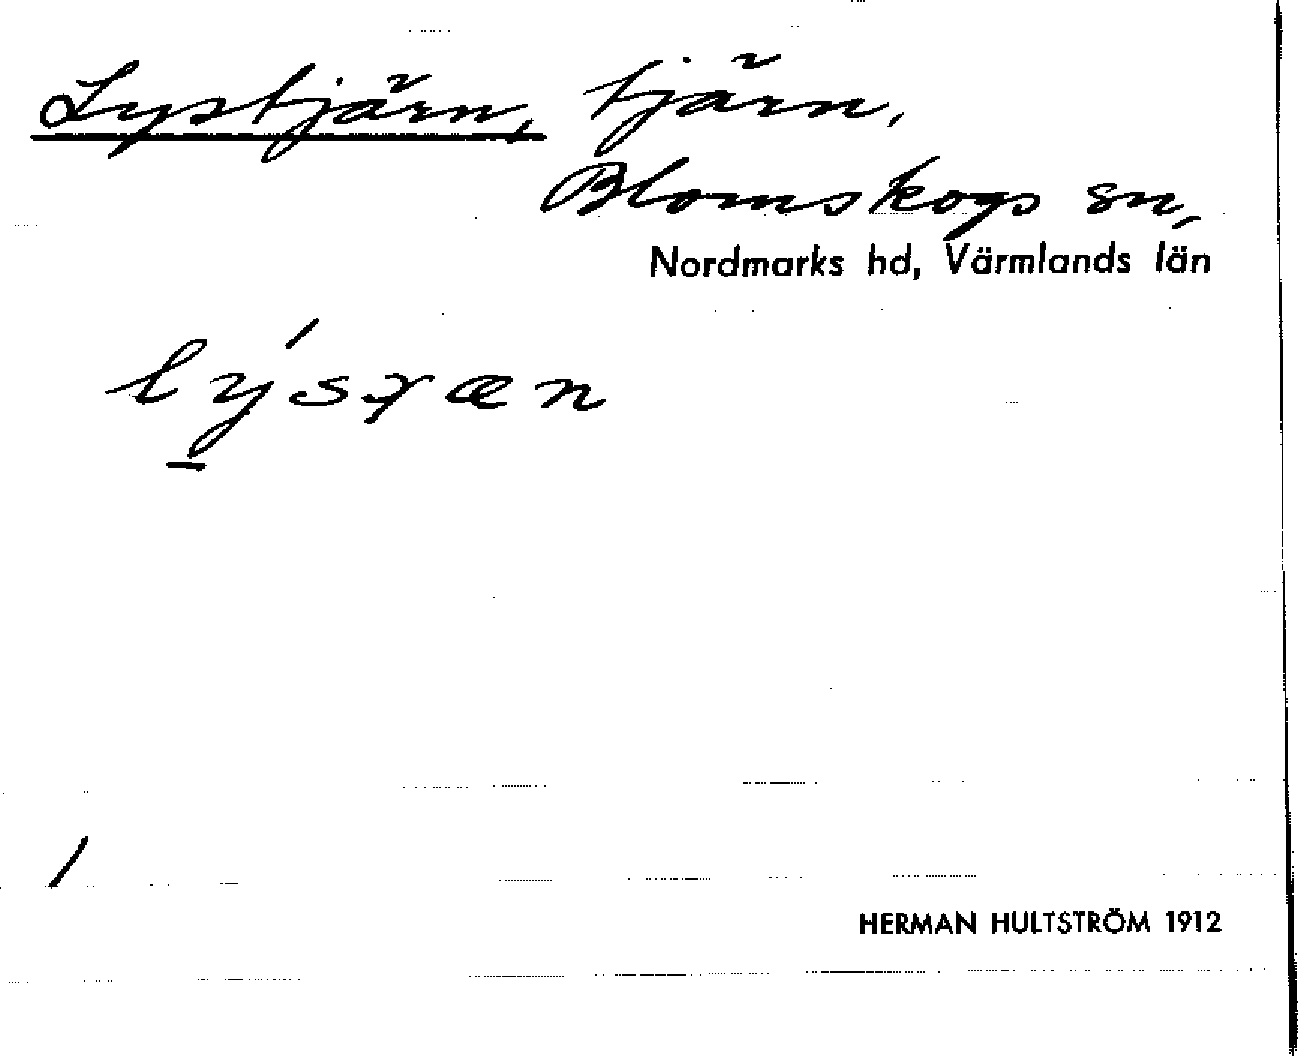 Lystjärn, tjärn,
Blomskogs sn,
Nordmarks hd, Värmlands län
1
HERMAN HULTSTRÖM 1912